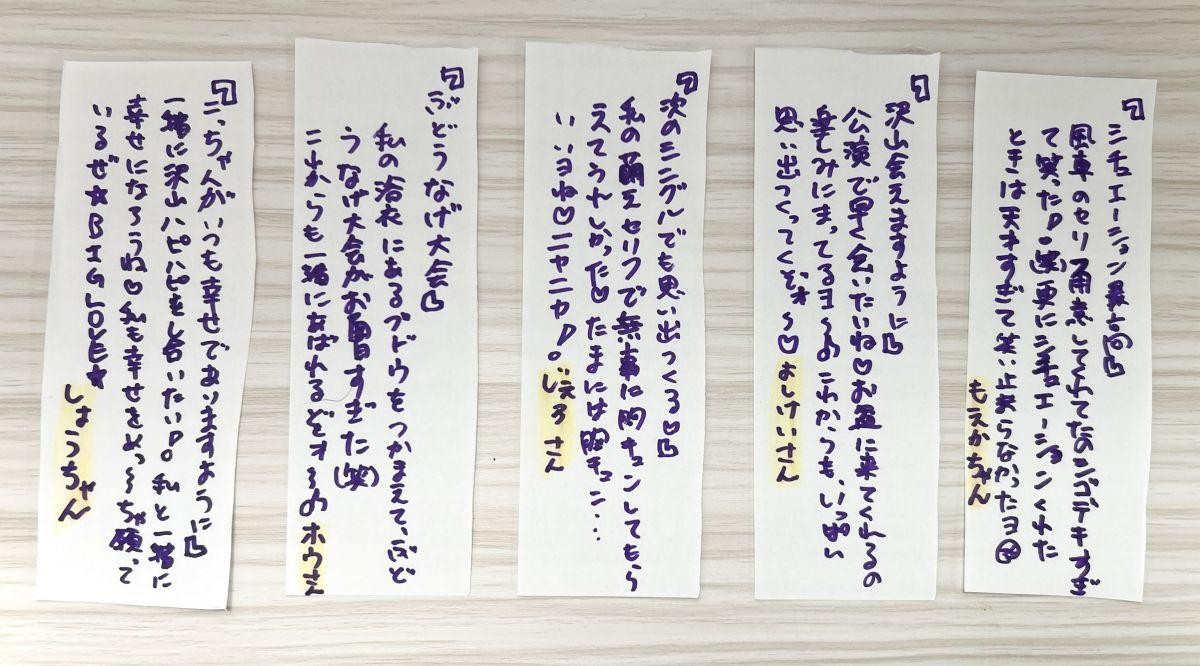 「シチュエーション最高」
風車のセリフ用意してくれてたのシゴデキすぎ
て笑った!。(笑)更にシチュエーションくれた
ときは天才すぎて笑い止まらなかったヨ
もえかちゃん
「沢山会えますように」
公演で早く会いたいね♡お盆に来てくれるの
楽しみにまってるヨ〜 これからも、いっぱい
思い出つくってくぞォ〜♡よしけいさん
「次のシングルでも思い出つくる♡」
私の萌えセリフで無事に胸キュンしてもら
えてうれしかった♡たまには胸キュン…
いいヨね♡ニヤニヤ!。じえるさん
「ぶどうなげ大会」
私の浴衣にあるブドウをつかまえて、ぶど
うなげ大会がお上手すぎた(笑)
これからも一緒にあばれるぞォ〜 ホウさん
「こっちゃんがいつも幸せでありますように」
一緒に沢山ハピハピをし合いたい!。私と一緒に
幸せになろうね♡私も幸せをめっ〜ちゃ願って
いるぜ★BIGLOVE★
しょうちゃん